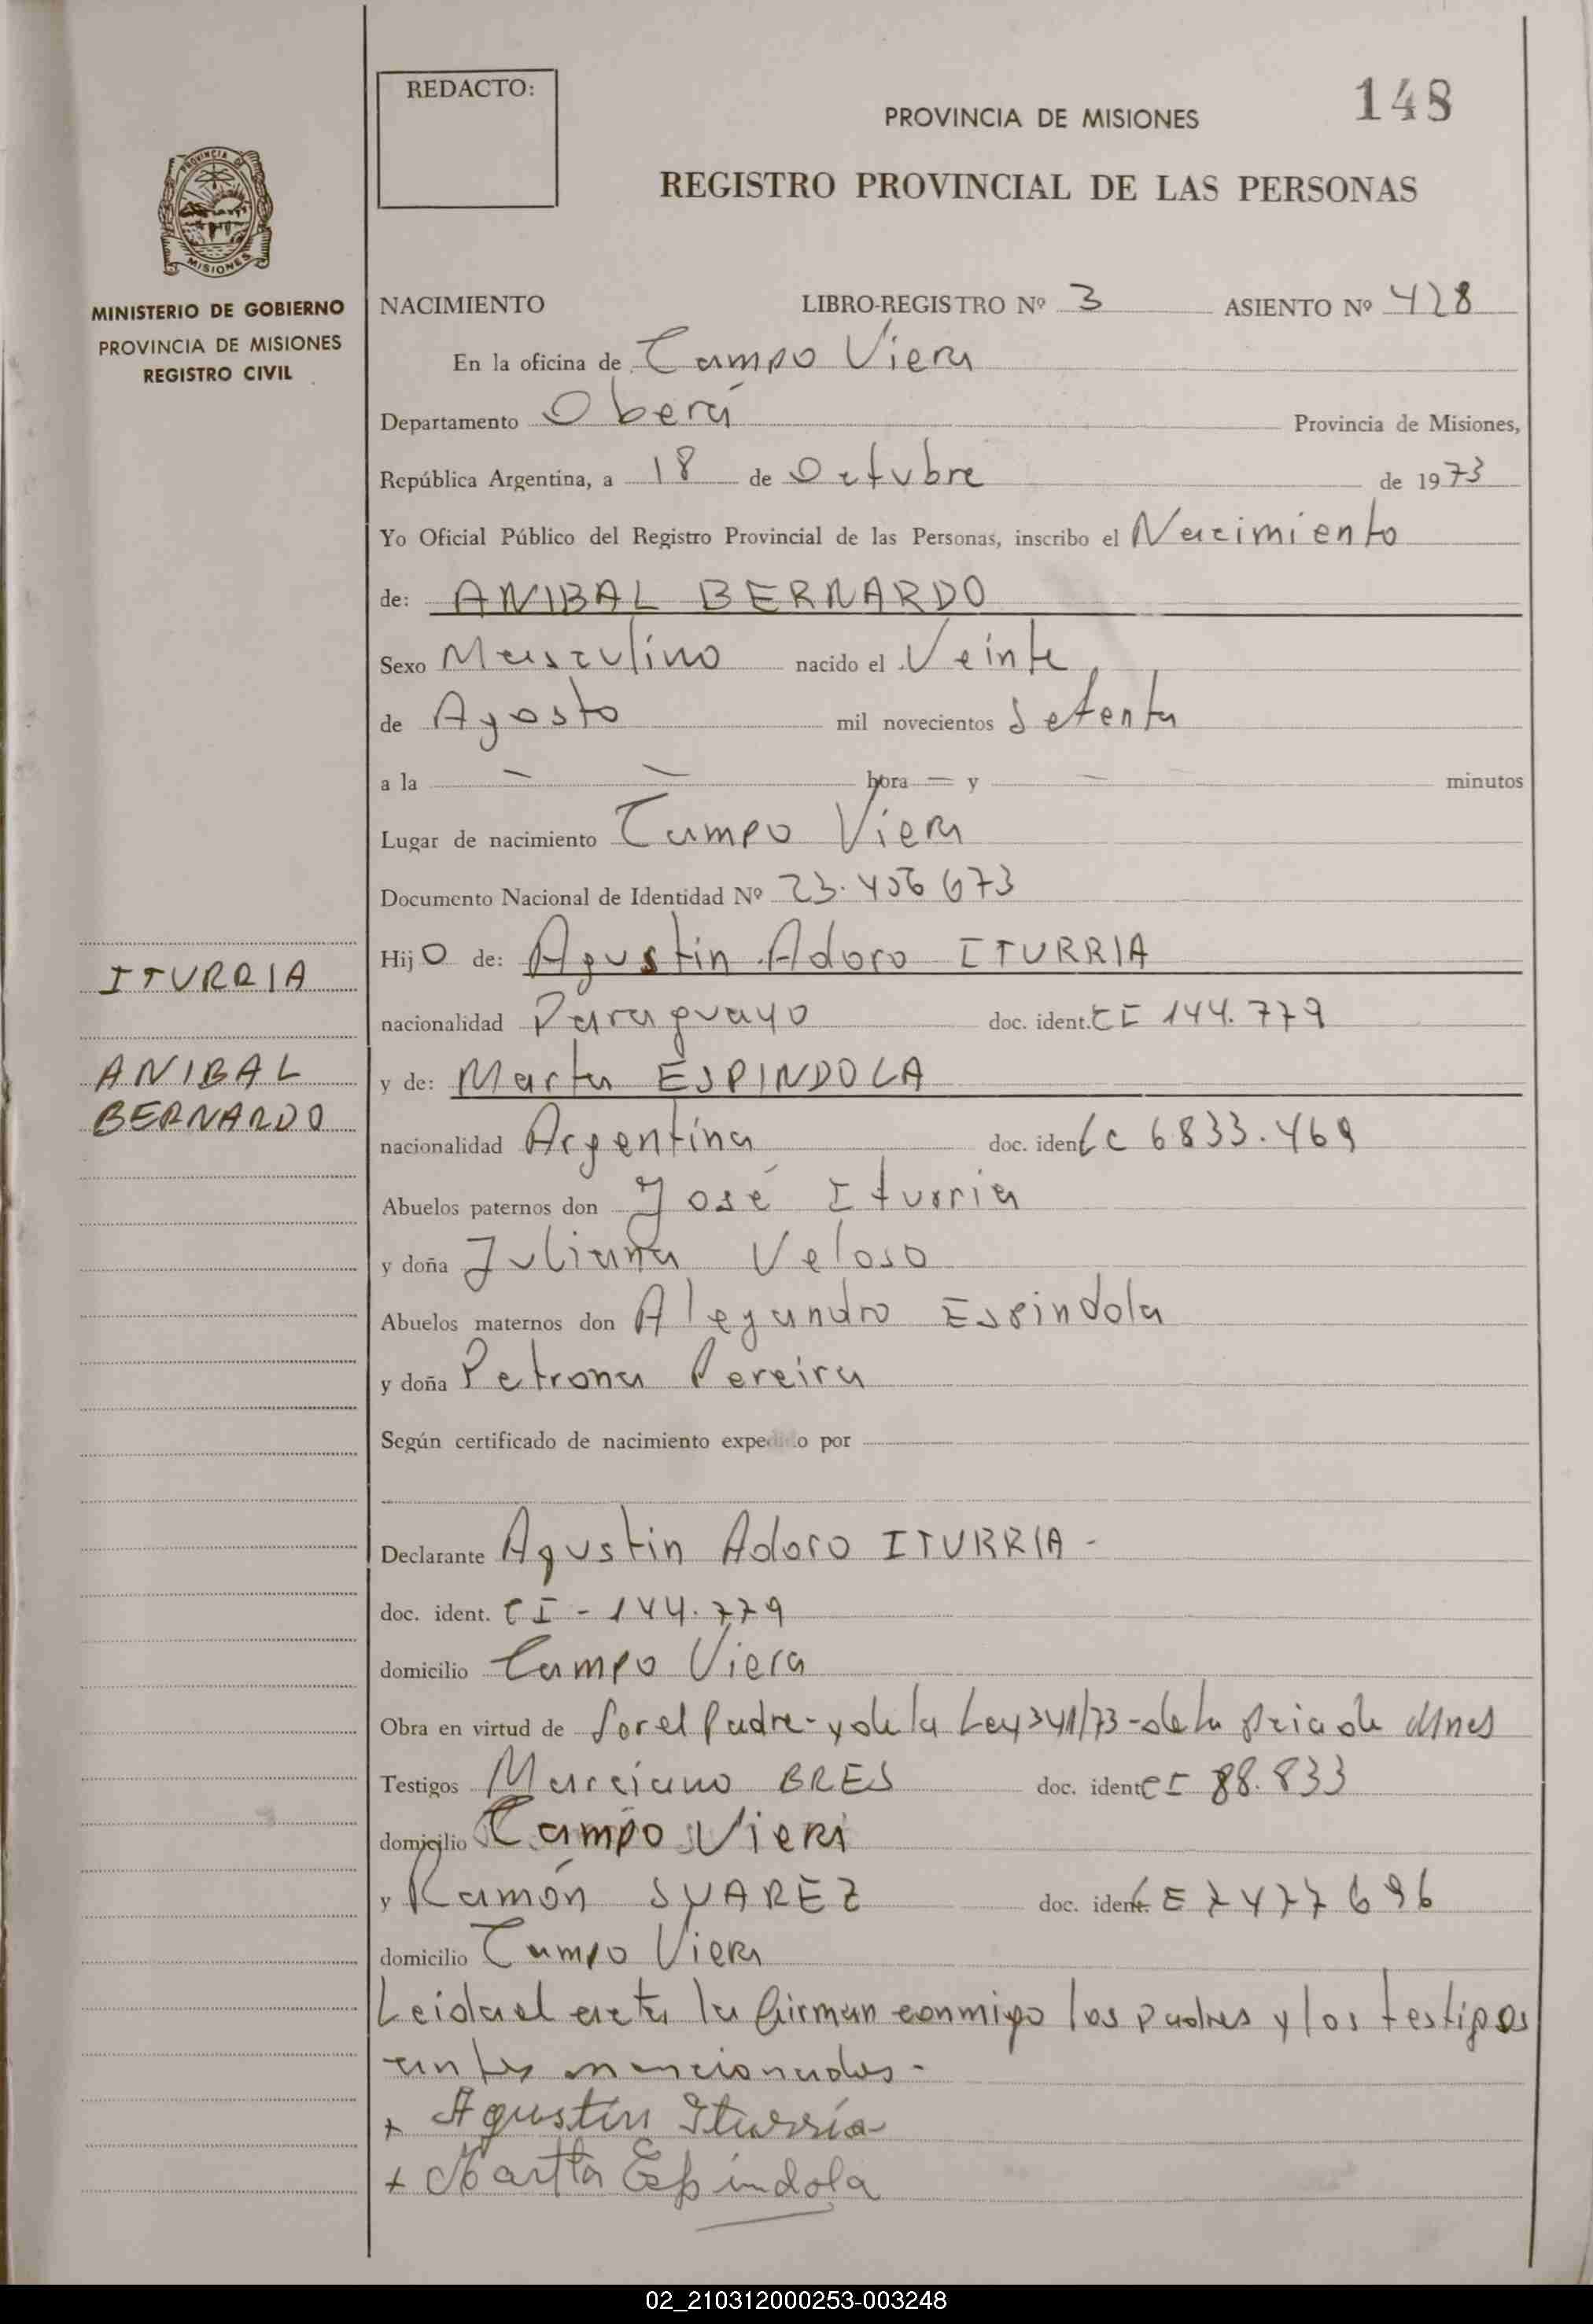 REDACTO:
148
PROVINCIA DE MISIONES
REGISTRO PROVINCIAL DE LAS PERSONAS
PROVINCIA DE
MISIONES
MINISTERIO DE GOBIERNO
PROVINCIA DE MISIONES
REGISTRO CIVIL
NACIMIENTO LIBRO-REGISTRO Nº 3 ASIENTO Nº 428
En la oficina de Campo Viera
Departamento Oberá Provincia de Misiones,
República Argentina, a 18 de Octubre de 1973
Yo Oficial Público del Registro Provincial de las Personas, inscribo el Nacimiento
de: ANIBAL BERNARDO
Sexo Masculino nacido el Veinte
de Agosto mil novecientos Setenta
a la — — hora — y — minutos
Lugar de nacimiento Campo Viera
Documento Nacional de Identidad Nº 23.456673
ITURRIA
ANIBAL
BERNARDO
Hijo de: Agustin Adoro ITURRIA
nacionalidad Paraguayo doc. ident. CI 144.779
y de: Marta ESPINDOLA
nacionalidad Argentina doc. ident LC 6833.469
Abuelos paternos don José Iturria
y doña Juliana Veloso
Abuelos maternos don Alejandro Espindola
y doña Petrona Pereira
Según certificado de nacimiento expedido por
Declarante Agustin Adoro ITURRIA -
doc. ident. CI - 144.779
domicilio Campo Viera
Obra en virtud de Por el Padre - y de la Ley 341/73 - de la Pcia de Mnes
Testigos Marciano BRES doc. ident CI 88.833
domicilio Campo Viera
y Ramón SUAREZ doc. ident. LE 7477696
domicilio Campo Viera
Leida el acta la firman conmigo los padres y los testigos
antes mencionados -
+ Agustin Iturria
+ Martta Espindola
02_210312000253-003248